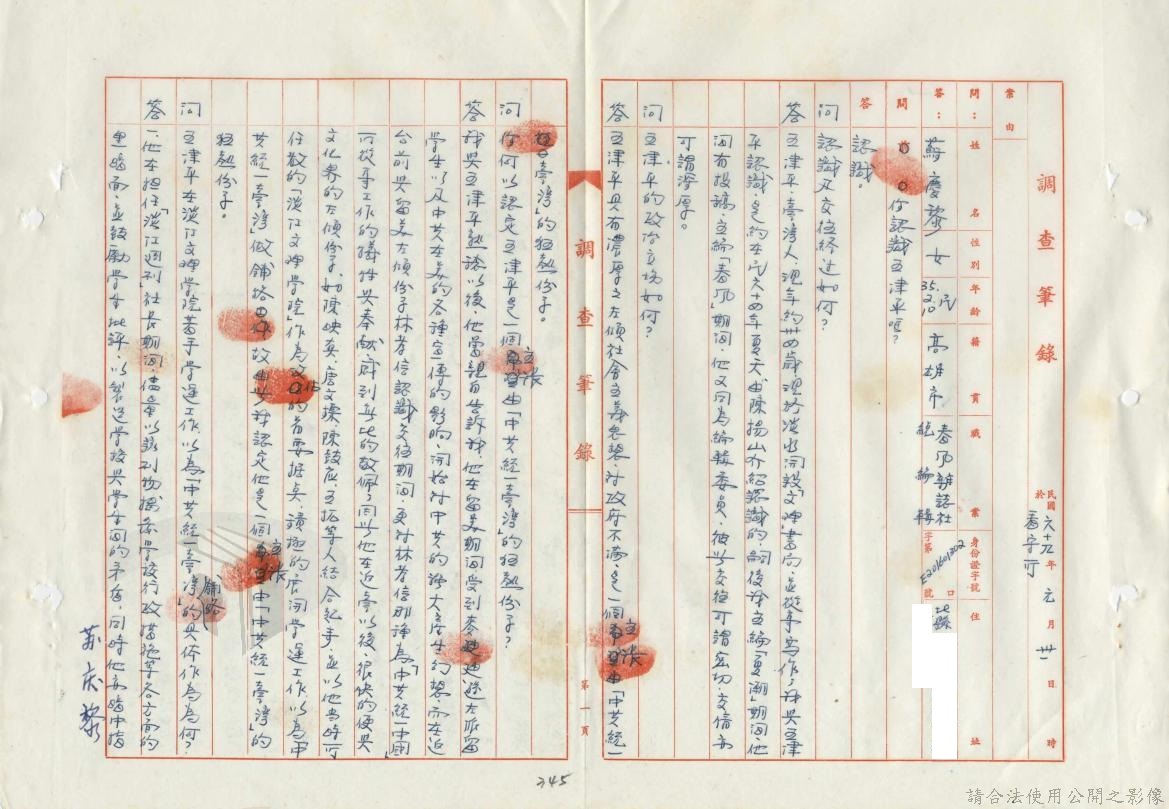 調查筆錄
民國六十九年元月卅一日 時
於
案由
問：姓名 性別 年齡 籍貫 職業 身份證字號 住址
答：蘇慶黎 女 35.2.10 民 高雄市 春風雜誌社總編輯 字第E201601302號 北縣
問 你認識王津平嗎？
答 認識。
問 認識及交往經過如何？
答 王津平，臺灣人，現年約卅四歲，現於淡水開設「文理」書局，並從事寫作，我與王津
平認識是約在民六十四年夏天，由陳揚山介紹認識的，嗣後我主編「夏潮」期間，他
間有投稿，主編「春風」期間，他又同為編輯委員，彼此交往可謂密切，交情亦
可謂深厚。
問 王津平的政治立場如何？
答 王津平具有濃厚之左傾社會主義思想，對政府不滿，是一個主張由「中共統一
臺灣」的狂熱份子。
調查筆錄
第一頁
問 你何以認定王津平是一個主張由「中共統一臺灣」的狂熱份子？
答 我與王津平熟識以後，他曾親自告訴我，他在留美期間，受到麥迪遜左派留
學生以及中共在美的各種宣傳的影响，開始對中共的誇大產生幻想，而在返
台前與留美左傾份子林孝信認識交往期間，更對林孝信那種為「中共統一中國」
可放手工作的犧牲與奉献，感到無比的敬佩，因此他在返臺以後，很快的便與
文化界的左傾份子，如陳映真、唐文標、陳鼓應、王拓等人結合紀手，並以他當時可
任教的「淡江文理學院」作為 的首要據點，積極的展開學運工作，以為「中
共統一臺灣」做鋪路 ，故由此我認定他是一個主張由「中共統一臺灣」的
狂熱份子。
問 王津平在淡江文理學院著手學運工作，以為「中共統一臺灣」鋪路的具体作為為何？
答 一、他在担任「淡江週刊」社長期間，儘量以該刊物揭發學校行政措施等各方面的
黑暗面，並鼓勵學生批評，以製造學校與學生間的矛盾，同時他亦暗中指
苏庆黎
345
請合法使用公開之影像